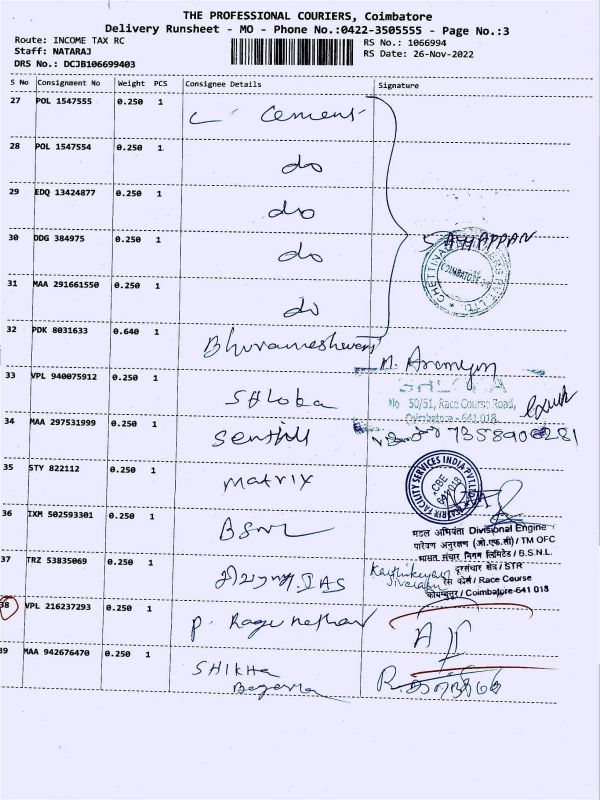 THE PROFESSIONAL COURIERS, Coimbatore
Delivery Runsheet - MO - Phone No.:0422-3505555 - Page No.:3
Route: INCOME TAX RC
RS No.: 1066994
Staff: NATARAJ
RS Date: 26-Nov-2022
DRS No.: DCJB106699403
S No Consignment No Weight PCS Consignee Details Signature
27 POL 1547555 0.250 1 Cement
28 POL 1547554 0.250 1 do
29 EDQ 13424877 0.250 1 do
30 DDG 384975 0.250 1 do
S. AYYAPPAN
COIMBATORE
31 MAA 291661550 0.250 1 do
32 PDK 8031633 0.640 1 Bhuvaneshwari
33 VPL 940075912 0.250 1 Shloka
No 50/51, Race Course Road,
Coimbatore - 641 018
34 MAA 297531999 0.250 1 Senthil
35 STY 822112 0.250 1 Matrix
MATRIX FACILITY SERVICES INDIA PVT LTD
CBE
641 018
36 IXM 502593301 0.250 1 BSNL
मंडल अभियंता Divisional Engineer
पारेषण अनुरक्षण (ओ.एफ.सी) / TM OFC
भारत संचार निगम लिमिटेड / B.S.N.L.
दूरसंचार क्षेत्र / STR
37 TRZ 53835069 0.250 1 IAS
रेस कोर्स / Race Course
कोयम्बत्तूर / Coimbatore-641 018
38 VPL 216237293 0.250 1 P. Ragunathan
39 MAA 942676470 0.250 1 SHIKHA